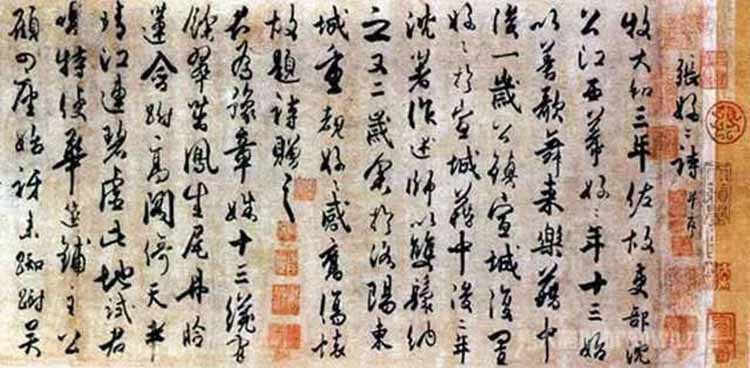 張好〻詩 并序
牧大和三年佐故吏部沈
公江西幕好〻年十三始
以善歌舞來樂籍中
後一歲公鎮宣城復置
好〻於宣城籍中後二年
沈著作述師以雙鬟納
之又二歲余於洛陽東
城重覩好〻感舊傷懷
故題詩贈之
君為豫章姝十三纔有
餘翠茁鳳生尾丹臉
蓮含跗高閣倚天半
晴江連碧虛此地試君
唱特使華筵鋪主公
顧四座始訝來踟躕吴